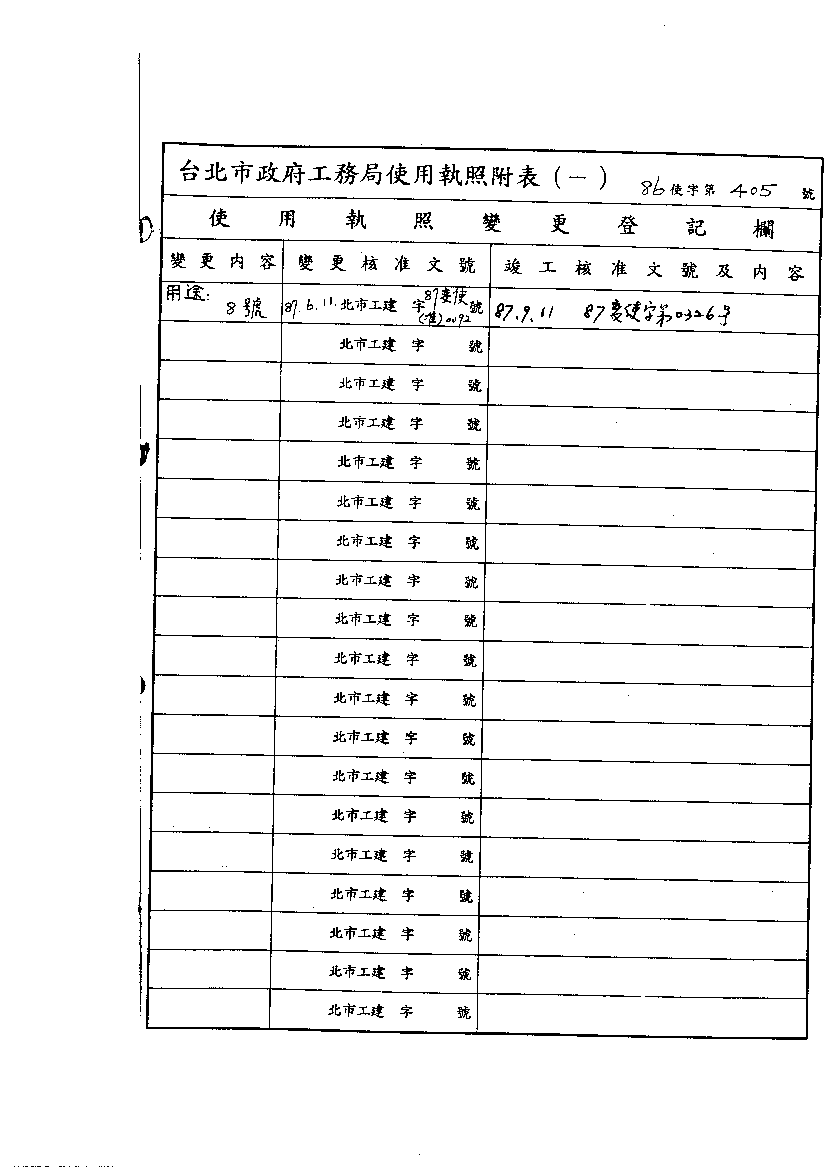 台北市政府工務局使用執照附表(一) 86使字第 405 號
使用執照變更登記欄
變更內容 變更核准文號 竣工核准文號及內容
用途: 8號 87.6.11.北市工建 字87變使(准)0092號 87.9.11 87變使字第0326号
北市工建 字 號
北市工建 字 號
北市工建 字 號
北市工建 字 號
北市工建 字 號
北市工建 字 號
北市工建 字 號
北市工建 字 號
北市工建 字 號
北市工建 字 號
北市工建 字 號
北市工建 字 號
北市工建 字 號
北市工建 字 號
北市工建 字 號
北市工建 字 號
北市工建 字 號
北市工建 字 號